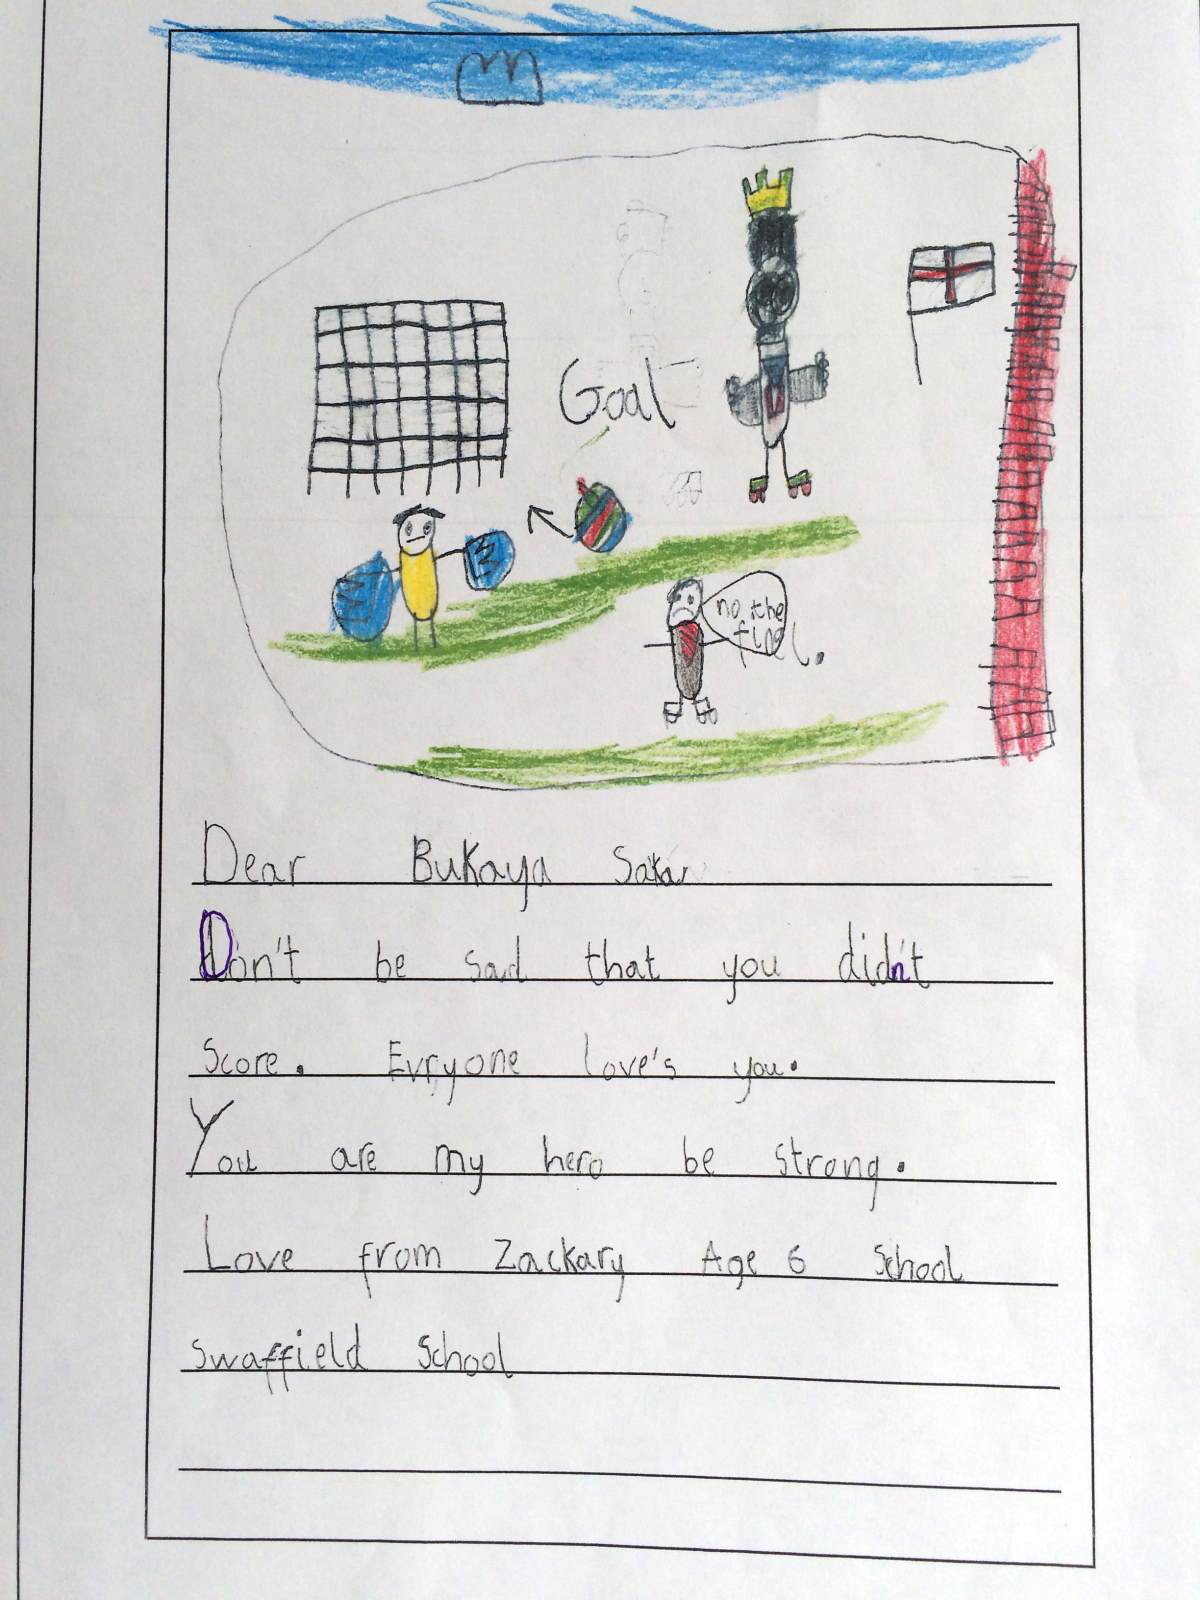 Goal
no the
final.
Dear Bukaya Saka
Don't be sad that you didn't
Score. Evryone love's you.
You are my hero be strong.
Love from Zackary Age 6 School
swaffield School